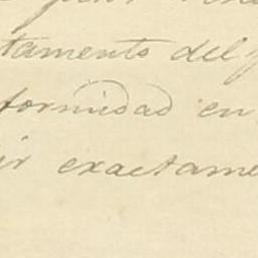 tamento del
formidad en
ir exactame